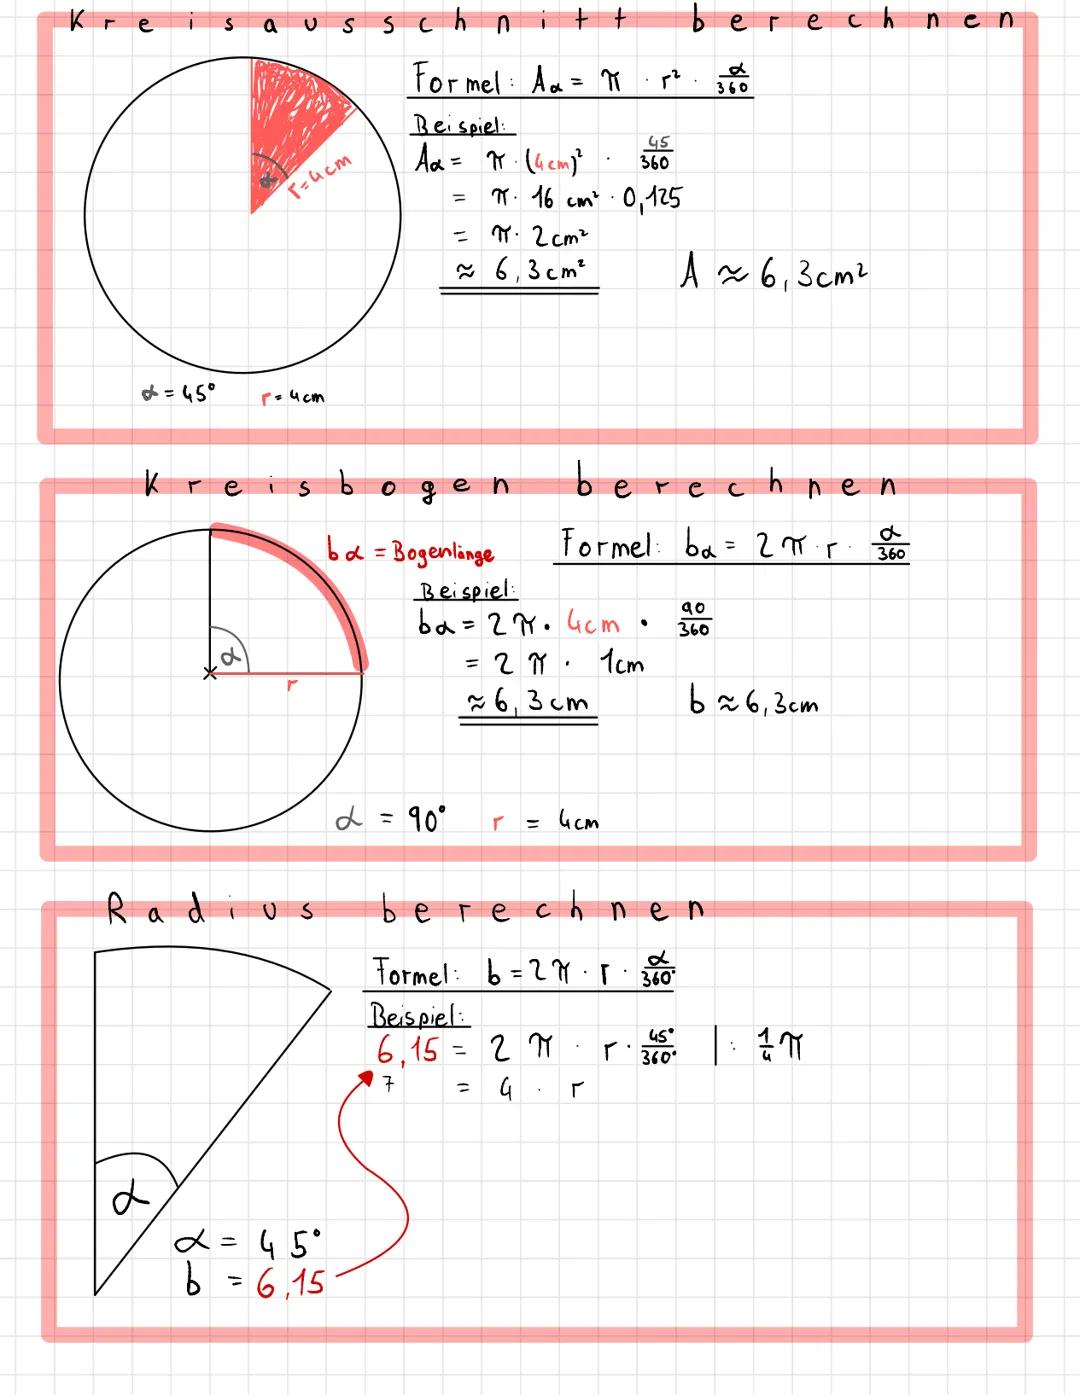 Kreisausschnitt berechnen
Formel: Aα = π · r² · α/360
Beispiel:
Aα = π · (4cm)² · 45/360
= π · 16 cm² · 0,125
= π · 2cm²
≈ 6,3cm² A ≈ 6,3cm²
α r=4cm
α = 45° r = 4cm
Kreisbogen berechnen
bα = Bogenlänge Formel: bα = 2π · r · α/360
Beispiel:
bα = 2π · 4cm · 90/360
= 2π · 1cm
≈ 6,3cm b ≈ 6,3cm
α
r
α = 90° r = 4cm
Radius berechnen
Formel: b = 2π · r · α/360°
Beispiel:
6,15 = 2π · r · 45°/360° | : 1/4 π
7 = 4 · r
α
α = 45°
b = 6,15